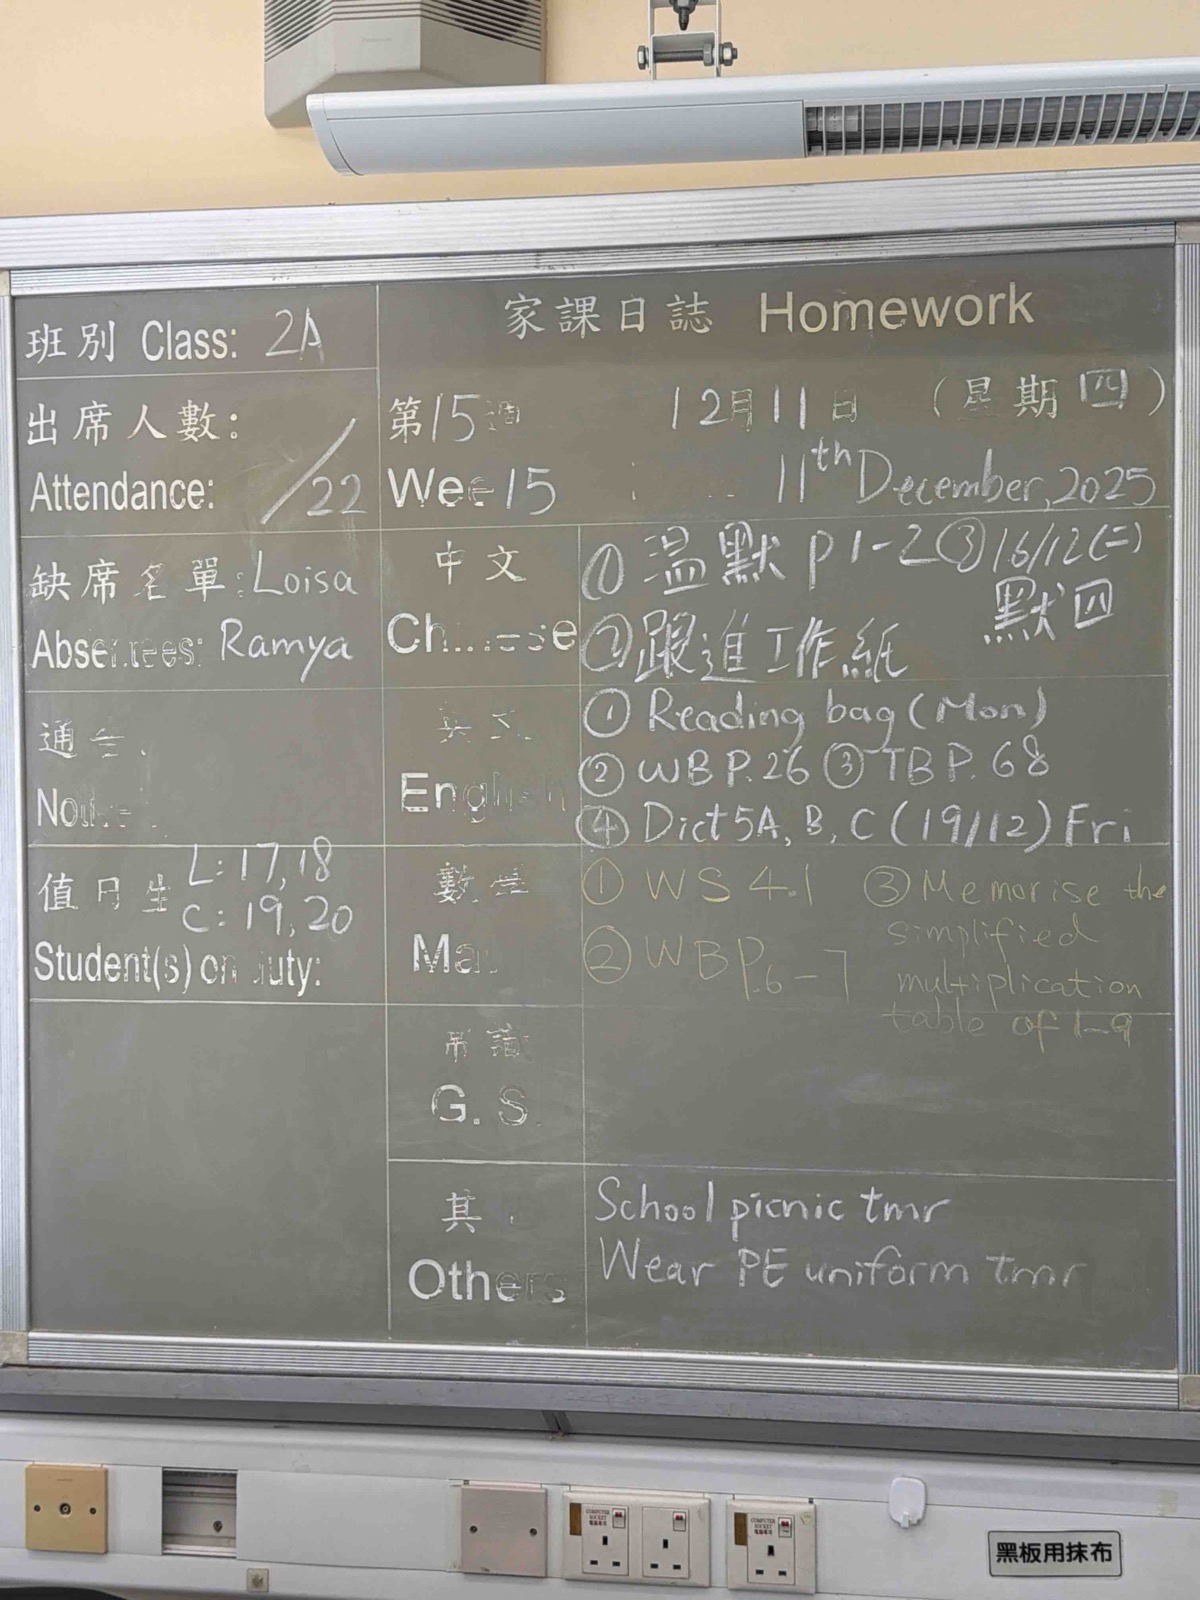 家課日誌 Homework
班別 Class: 2A
出席人數:
Attendance: /22
第15週 12月11日 (星期四)
Wee 15 11th December, 2025
缺席名單: Loisa
Absentees: Ramya
通告
值日生 L: 17, 18
C: 19, 20
Student(s) on duty:
中文
Chinese
① 温默 P1-2 ③ 16/12(二)
默四
② 跟進工作紙
英文
English
① Reading bag (Mon)
② WB P.26 ③ TB P.68
④ Dict 5A, B, C (19/12) Fri
數學
Ma
① WS 4.1 ③ Memorise the
simplified
② WB P.6-7 multiplication
table of 1-9
常識
G. S.
其
Others
School picnic tmr
Wear PE uniform tmr
COMPUTER SOCKET
COMPUTER SOCKET
黑板用抹布